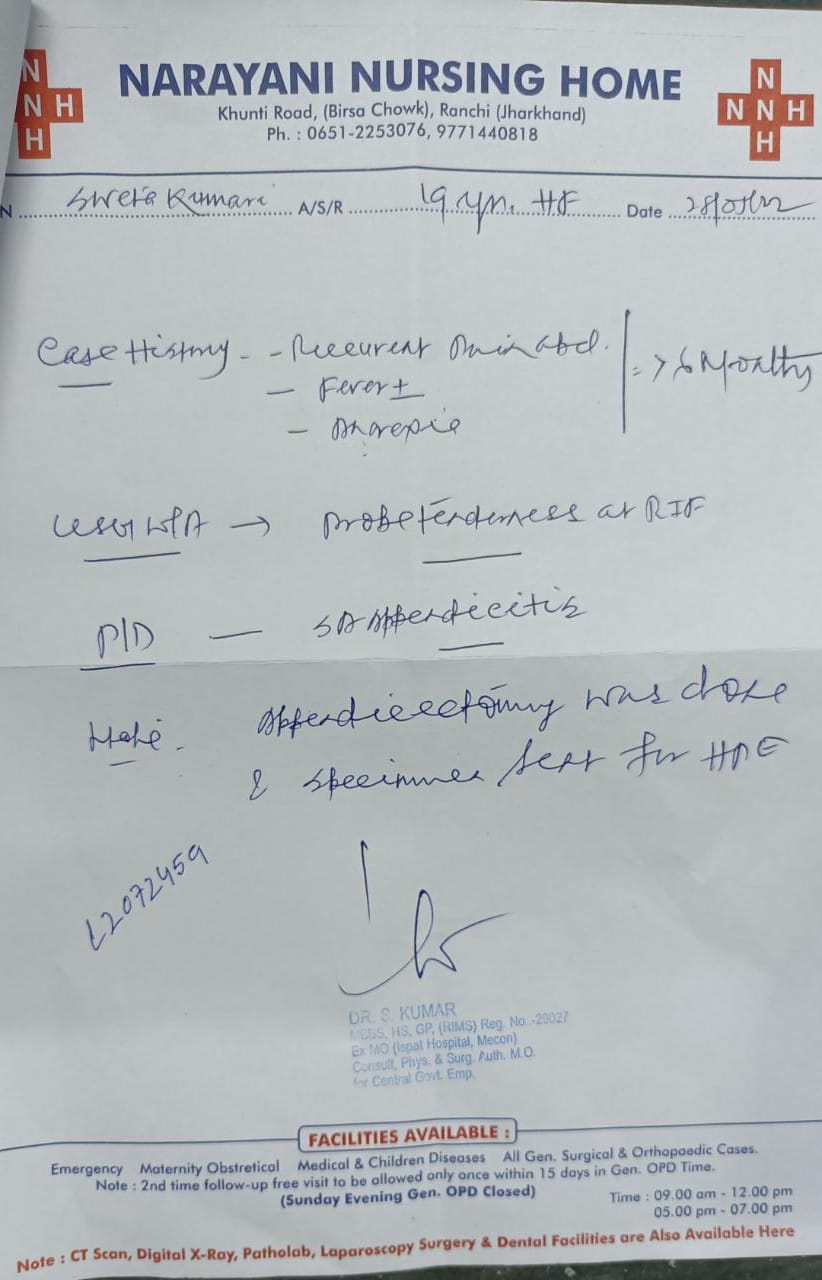 N
N H
H
NARAYANI NURSING HOME
Khunti Road, (Birsa Chowk), Ranchi (Jharkhand)
Ph. : 0651-2253076, 9771440818
N
N N H
H
N Sweta Kumari A/S/R 19 yrs. HF Date
Case History - - Reccurent Pain abd.
- Fever ±
- Anorexia
= > 6 Months
USG W/A → probe tenderness at RIF
P/D — SA Appendicitis
Appendicectomy was done
& specimen sent for HPE
L2072459
DR. S. KUMAR
MBBS, HS, GP, (RIMS) Reg. No.-20027
Ex MO (Ispat Hospital, Mecon)
Consult, Phys. & Surg. Auth. M.O.
for Central Govt. Emp.
FACILITIES AVAILABLE :
Emergency Maternity Obstretical Medical & Children Diseases All Gen. Surgical & Orthopaedic Cases.
Note : 2nd time follow-up free visit to be allowed only once within 15 days in Gen. OPD Time.
(Sunday Evening Gen. OPD Closed)
Time : 09.00 am - 12.00 pm
05.00 pm - 07.00 pm
Note : CT Scan, Digital X-Ray, Patholab, Laparoscopy Surgery & Dental Facilities are Also Available Here